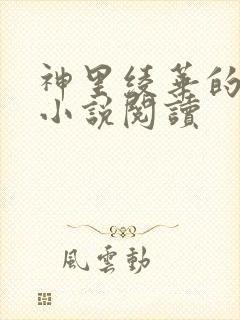 神里綾華的
小說閱讀
風雲動